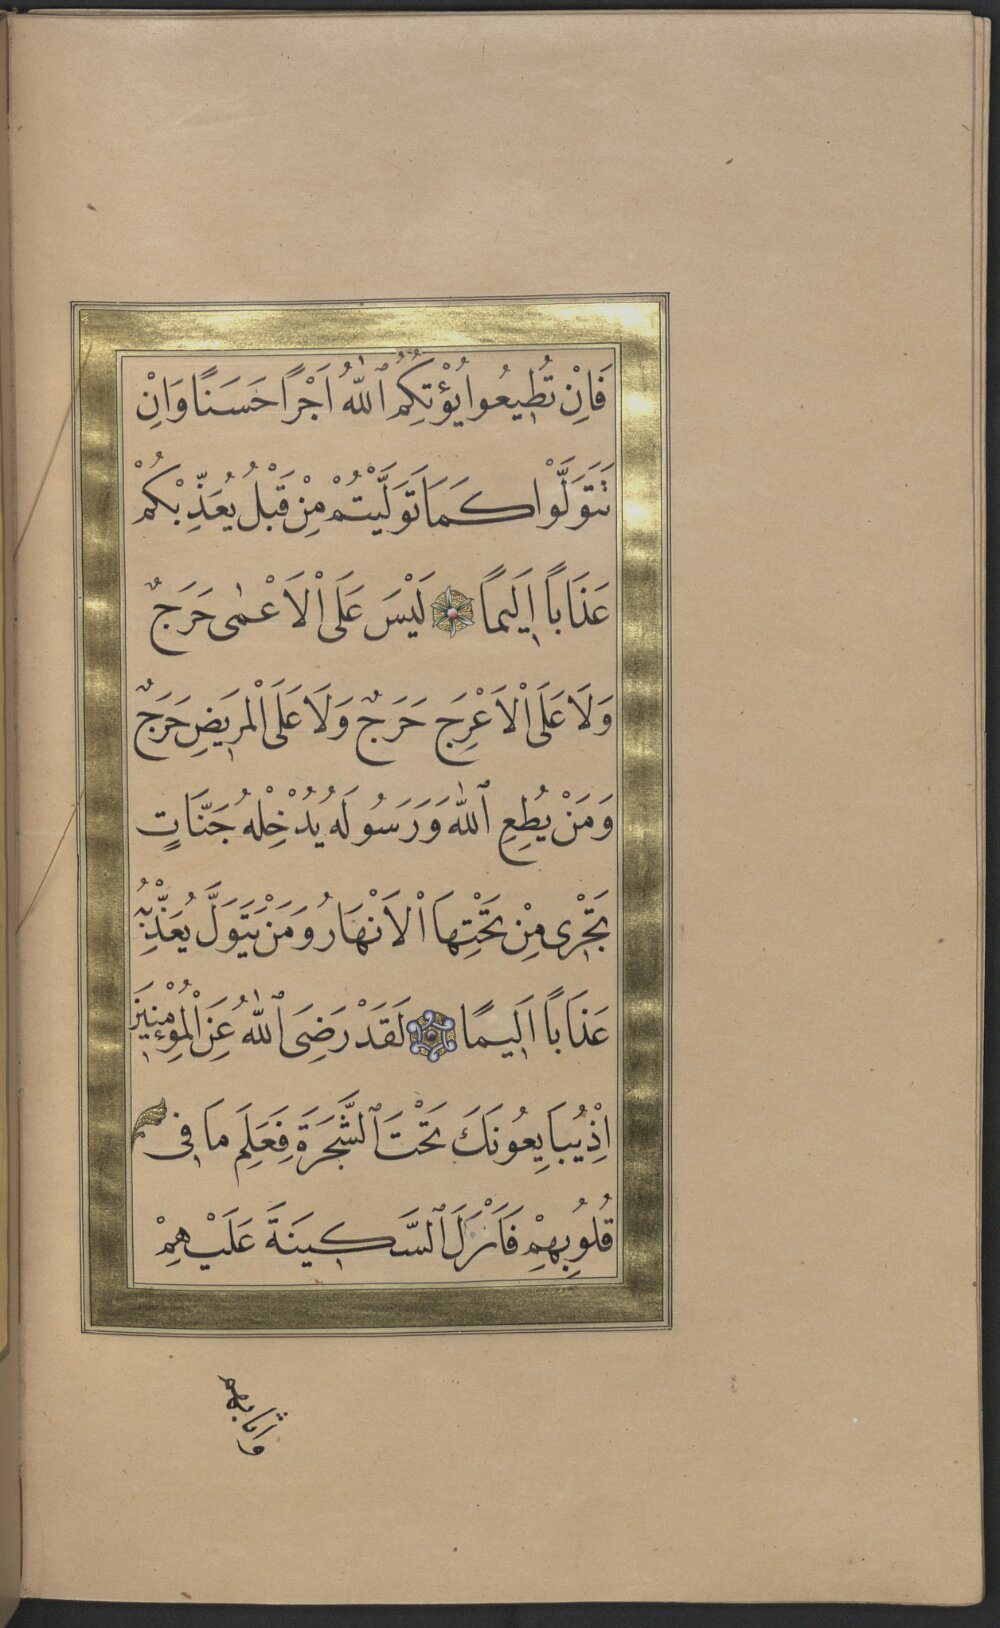 فَاِنْ تُطِيعُوا يُؤْتِكُمُ ٱللّٰهُ اَجْرًا حَسَنًا وَاِنْ
تَتَوَلَّوْا كَمَا تَوَلَّيْتُمْ مِنْ قَبْلُ يُعَذِّبْكُمْ
عَذَابًا اَلِيمًا لَيْسَ عَلَى ٱلْاَعْمٰى حَرَجٌ
وَلَا عَلَى ٱلْاَعْرَجِ حَرَجٌ وَلَا عَلَى ٱلْمَرِيضِ حَرَجٌ
وَمَنْ يُطِعِ ٱللّٰهَ وَرَسُولَهُ يُدْخِلْهُ جَنَّاتٍ
تَجْرِى مِنْ تَحْتِهَا ٱلْاَنْهَارُ وَمَنْ يَتَوَلَّ يُعَذِّبْهُ
عَذَابًا اَلِيمًا لَقَدْ رَضِىَ ٱللّٰهُ عَنِ ٱلْمُؤْمِنِينَ
اِذْ يُبَايِعُونَكَ تَحْتَ ٱلشَّجَرَةِ فَعَلِمَ مَا فِى
قُلُوبِهِمْ فَاَنْزَلَ ٱلسَّكِينَةَ عَلَيْهِمْ
واثابهم